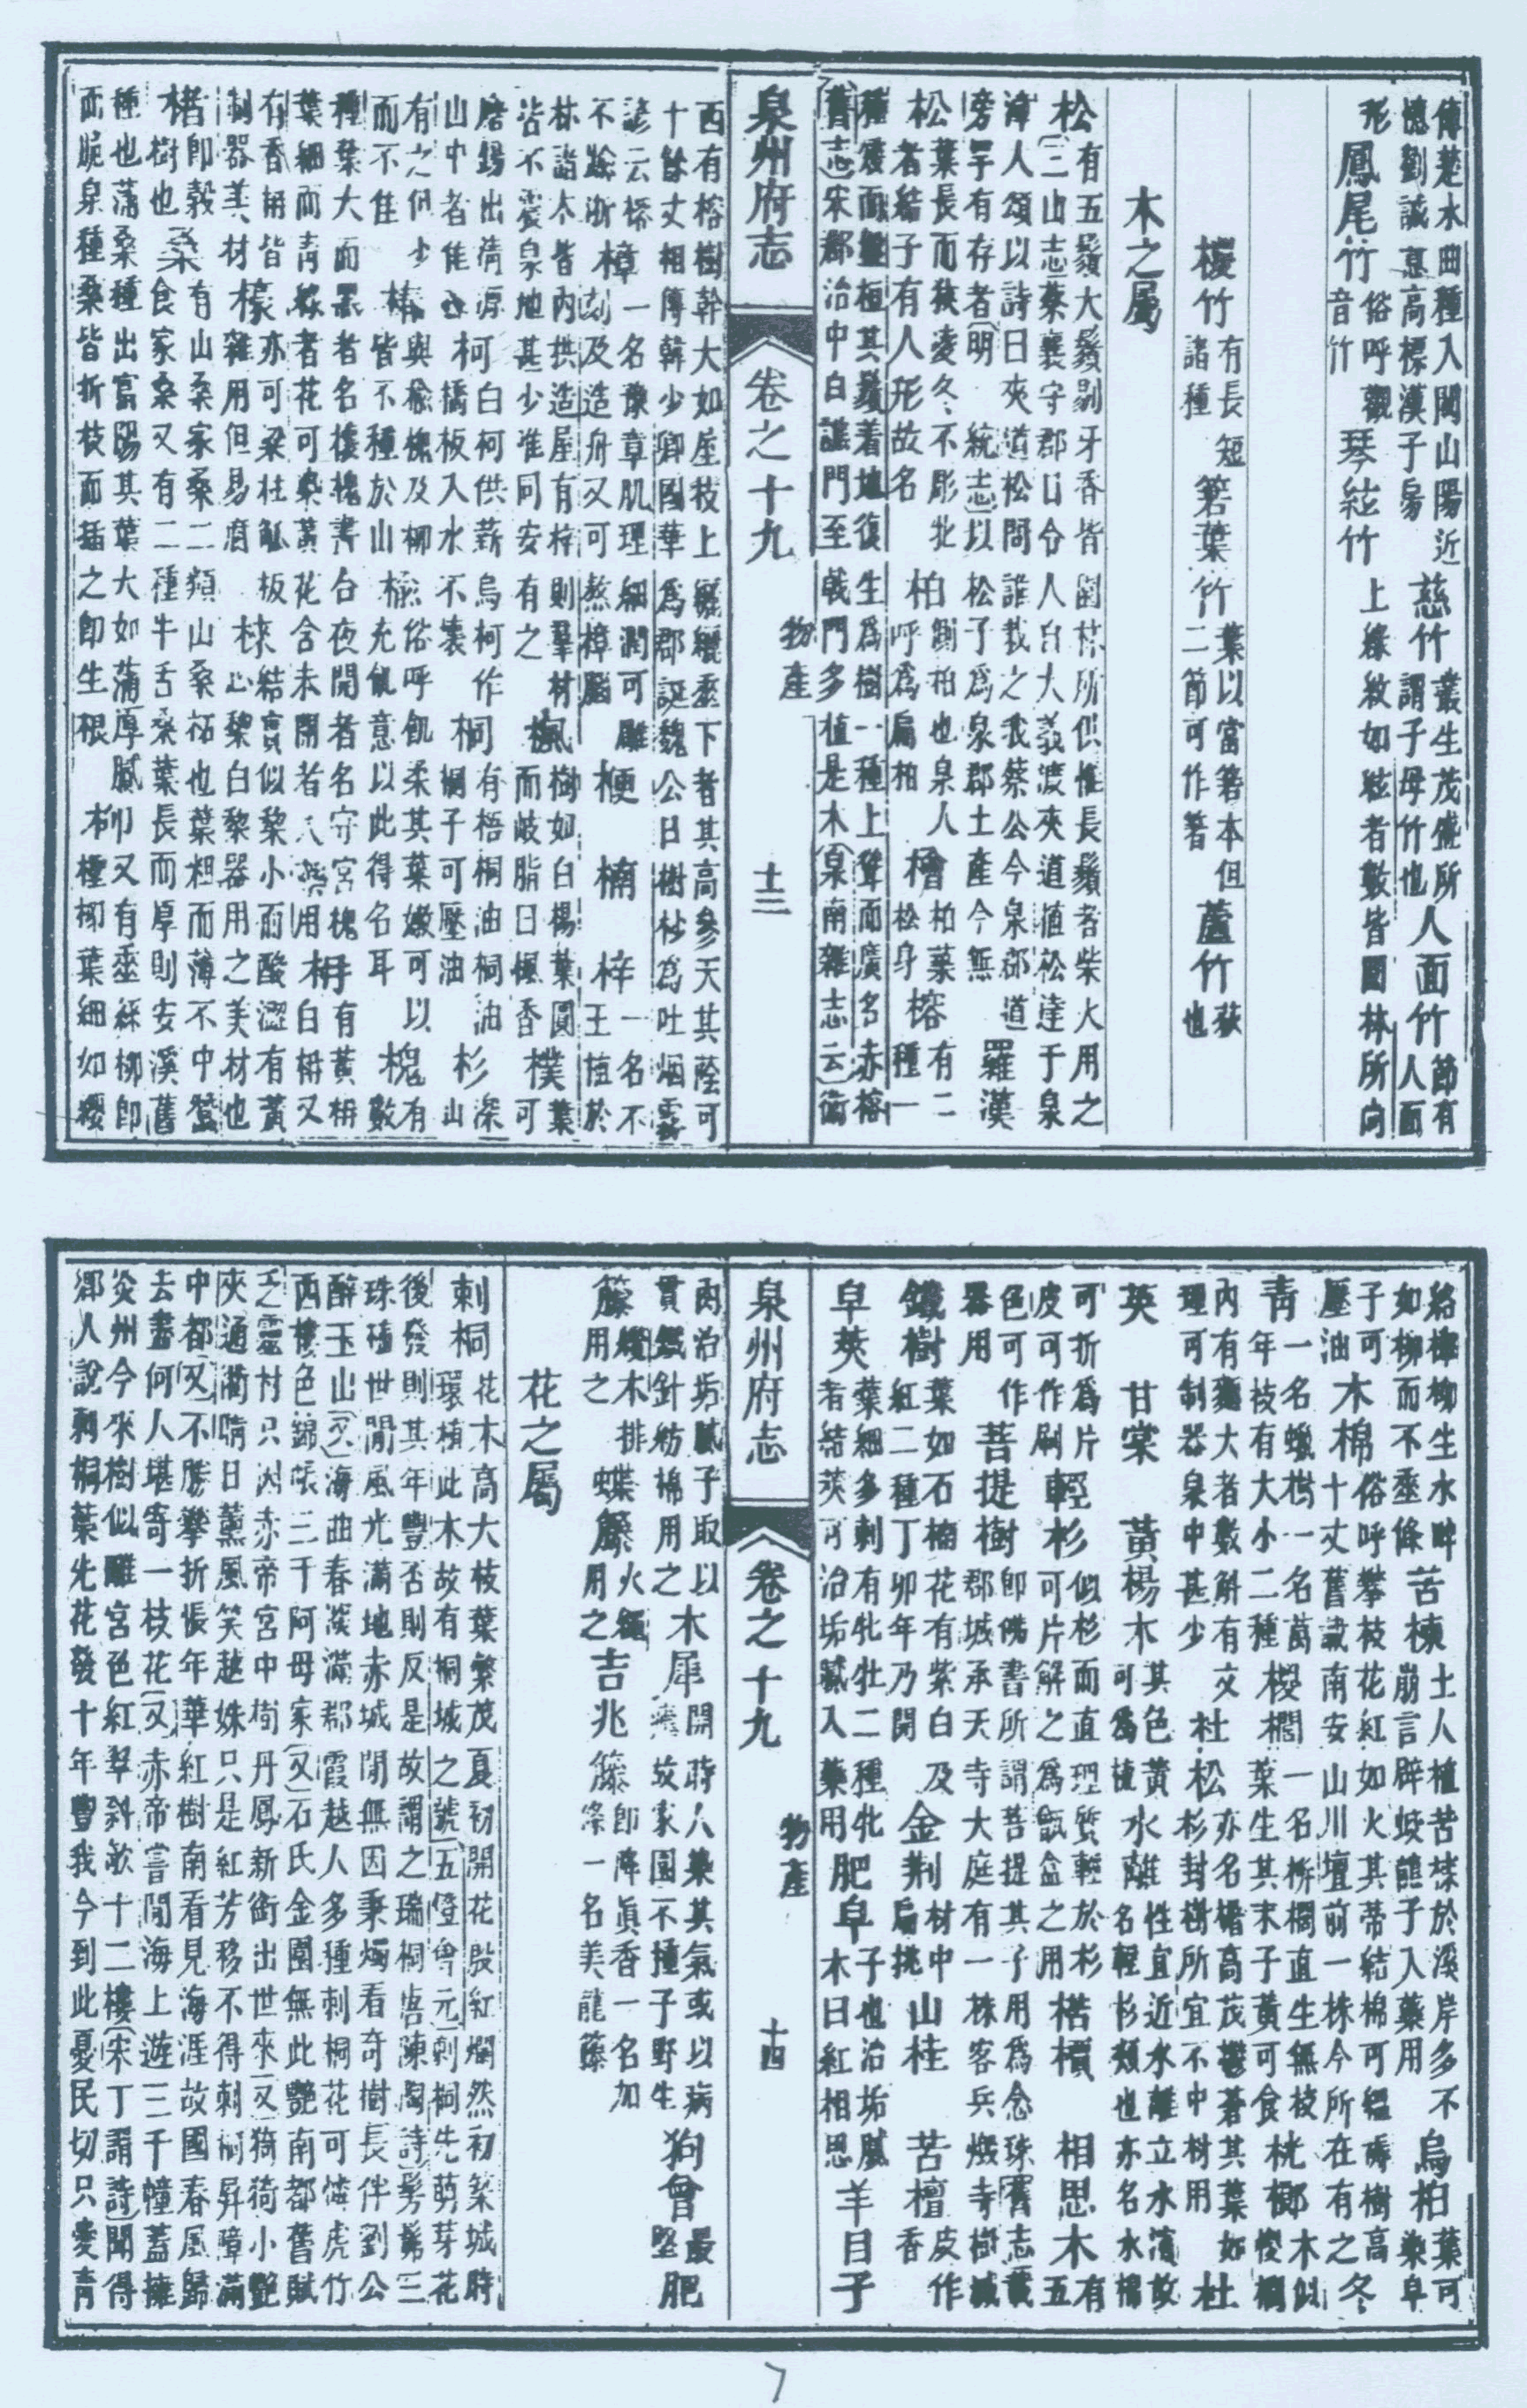 傳楚水曲種入閩山陽近憶劉誠意高標漢子房慈竹叢生茂盛所謂子母竹也人面竹節有人面
形鳳尾竹俗呼觀音竹琴絃竹上綠紋如絃者數皆園林所向
椶竹有長短諸種箬葉竹葉以當箬本但二節可作箸蘆竹荻也
木之屬
松有五鬚大鬚剔牙香皆園林所供惟長鬚者柴火用之三山志蔡襄守郡日令人自大義渡夾道植松達于泉
漳人頌以詩曰夾道松問誰栽之我蔡公今泉郡道旁罕有存者明統志以松子爲泉郡土產今無羅漢
松葉長而狹凌冬不彫牝者結子有人形故名柏側柏也泉人呼爲扁柏檜柏葉松身榕有二種一
種矮而盤桓其鬚着地復生爲樹一種上聳而廣名赤榕舊志宋郡治中自譙門至戟門多植是木泉南雜志云衙
泉州府志 卷之十九 物產 十三
西有榕樹幹大如屋枝上纒垂下者其高參天其蔭可十餘丈相傳韓少卿國華爲郡誕魏公日樹杪爲吐烟雲
諺云榕不踰浙樟一名豫章肌理細潤可雕刻及造舟又可熬樟腦楩楠梓一名木王植於
林諸木皆內拱造屋有梓則羣材皆不震泉地甚少惟同安有之楓楓樹如白楊葉圓而岐脂曰楓香樸葉可
磨錫出清源山中者佳柯可白柯供薪烏柯作橋板入水不壞桐桐有梧桐油桐油桐子可壓油杉深山
有之但少而不佳椿與樗槐及柳皆不種於山榆榆俗呼飢柔其葉嫩可以充飢意以此得名耳槐有數
種葉大而黑者名櫰槐晝合夜開者名守宮槐葉細而青綠者花可染黃花含未開者入藥用枏有黃枏白枏又
有香枏皆制器美材亦可梁柱板來結實似黎小而酸澀有黃雜用但易腐心黎白黎器用之美材也
楮卽榖樹也桑有山桑家桑二類山桑柘也葉粗而薄不中蠶食家桑又有二種牛舌桑葉長而厚則安溪舊
種也蒲桑種出富陽其葉大如蒲厚膩而脆泉種桑皆折枝而插之卽生根柳柳又有垂絲柳卽檉柳葉細如纓
絡櫸柳生水畔如柳而不垂條苦楝土人植苦楝於溪岸多不崩言辟蛟龍子入藥用烏桕葉可染皁
子可壓油木棉俗呼攀枝花紅如火其蒂結棉可縕褥樹高十丈舊識南安山川壇前一株今所在有之冬
青一名蠟樹一名萬年枝有大小二種椶櫚一名栟櫚直生無枝葉生其末子黃可食桄榔木似椶櫚
內有麵大者數斛有文理可制器泉中甚少杜松亦名檜高茂鬱蒼其葉如杉封樹所宜不中材用杜
英甘棠黃楊木其色黃可爲梳水蘺性宜近水蘺立水濱故名輕杉類也亦名水棉
可折爲片皮可作刷輕杉似杉而直理質輕於杉可片解之爲甑盆之用楛檟相思木有五
色可作器用菩提樹卽佛書所謂菩提其子用爲念珠舊志載郡城承天寺大庭有一株客兵燬寺樹滅
鐵樹葉如石楠花有紫白及紅二種丁卯年乃開金荆材中扁挑山桂苦檀皮作香
皁莢葉細多刺有牝牡二種牝者結莢可治垢膩入藥用肥皁子也治垢膩木曰紅相思羊目子
泉州府志 卷之十九 物產 十四
肉治垢膩子取以貫鐵針紡棉用之木犀開時人藥其氣或以病故家園不種子野生狗曾最堅肥
籐纜木排用之蝶籐火繩用之吉兆籐卽降眞香一名加籐一名美龍籐
花之屬
刺桐花木高大枝葉繁茂夏初開花殷紅爛然初築城時環植此木故有桐城之號五燈會元刺桐先萌芽花
後發則其年豐否則反是故謂之瑞桐唐陳陶詩髣髴三珠植世間風光滿地赤城閒無因秉燭看奇樹長伴劉公
醉玉山又海曲春深滿郡霞越人多種刺桐花可憐虎竹西樓色錦帳三千阿母家又石氏金園無此艷南都舊賦
乏靈材只因赤帝宮中樹丹鳳新銜出世來又猗猗小艷夾通衢晴日薰風笑越姝只是紅芳移不得刺桐屏障滿
中都又不勝攀折悵年華紅樹南看見海涯故國春風歸去盡何人堪寄一枝花又赤帝嘗聞海上遊三千幢蓋擁
炎州今來樹似離宮色紅翠斜欹十二樓宋丁謂詩聞得鄉人說刺桐葉先花發十年豐我今到此憂民切只愛青
7